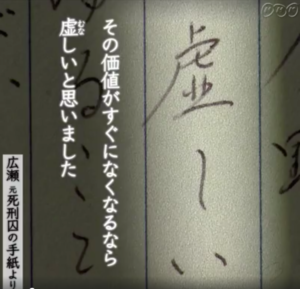 NHK
その価値がすぐになくなるなら
虚しいと思いました
むな
虚しい
広瀬 元死刑囚の手紙より